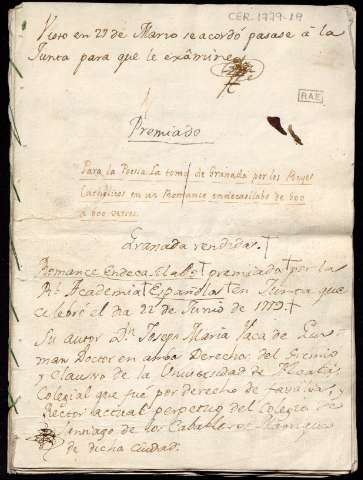 CER-1779-19
Visto en 29 de Marzo se acordó pasase á la
Junta para que le exâmine
RAE
Premiado
Para la Poesia. La toma de Granada por los Reyes
Catholicos en un Romance endecasilabo de 500
a 600 versos.
Granada rendida.
Romance Endecasilabo premiado por la
Rl. Academia Española en Junta que
celebró el dia 22 de Junio de 1779.
Su autor Dn. Joseph Maria Vaca de Guz
man Doctor en ambos Derechos, del Gremio
y Claustro de la Universidad de Alcalá,
Colegial que fué por derecho de y
Rector actual perpetuo del Colegio de
Santiago de los Caballeros Manrique
de dicha ciudad.